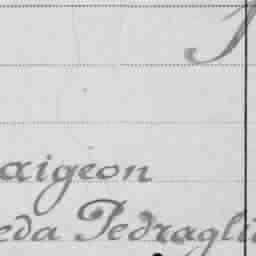 aigeon
eda Pedragli